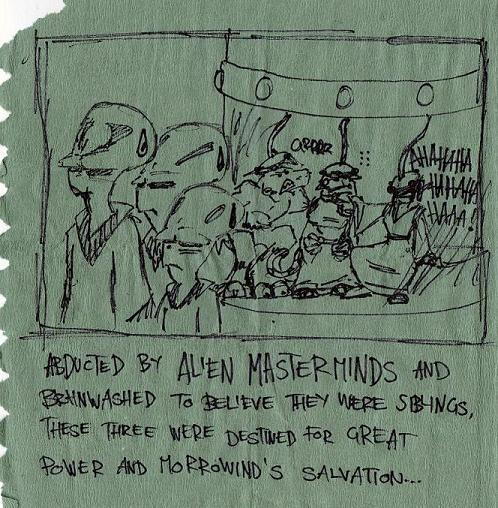 ORRRR
:::
AHAHAHA
HUHAHA
HAAA!
ABDUCTED BY ALIEN MASTERMINDS AND
BRAINWASHED TO BELIEVE THEY WERE SIBLINGS,
THESE THREE WERE DESTINED FOR GREAT
POWER AND MORROWIND'S SALVATION...